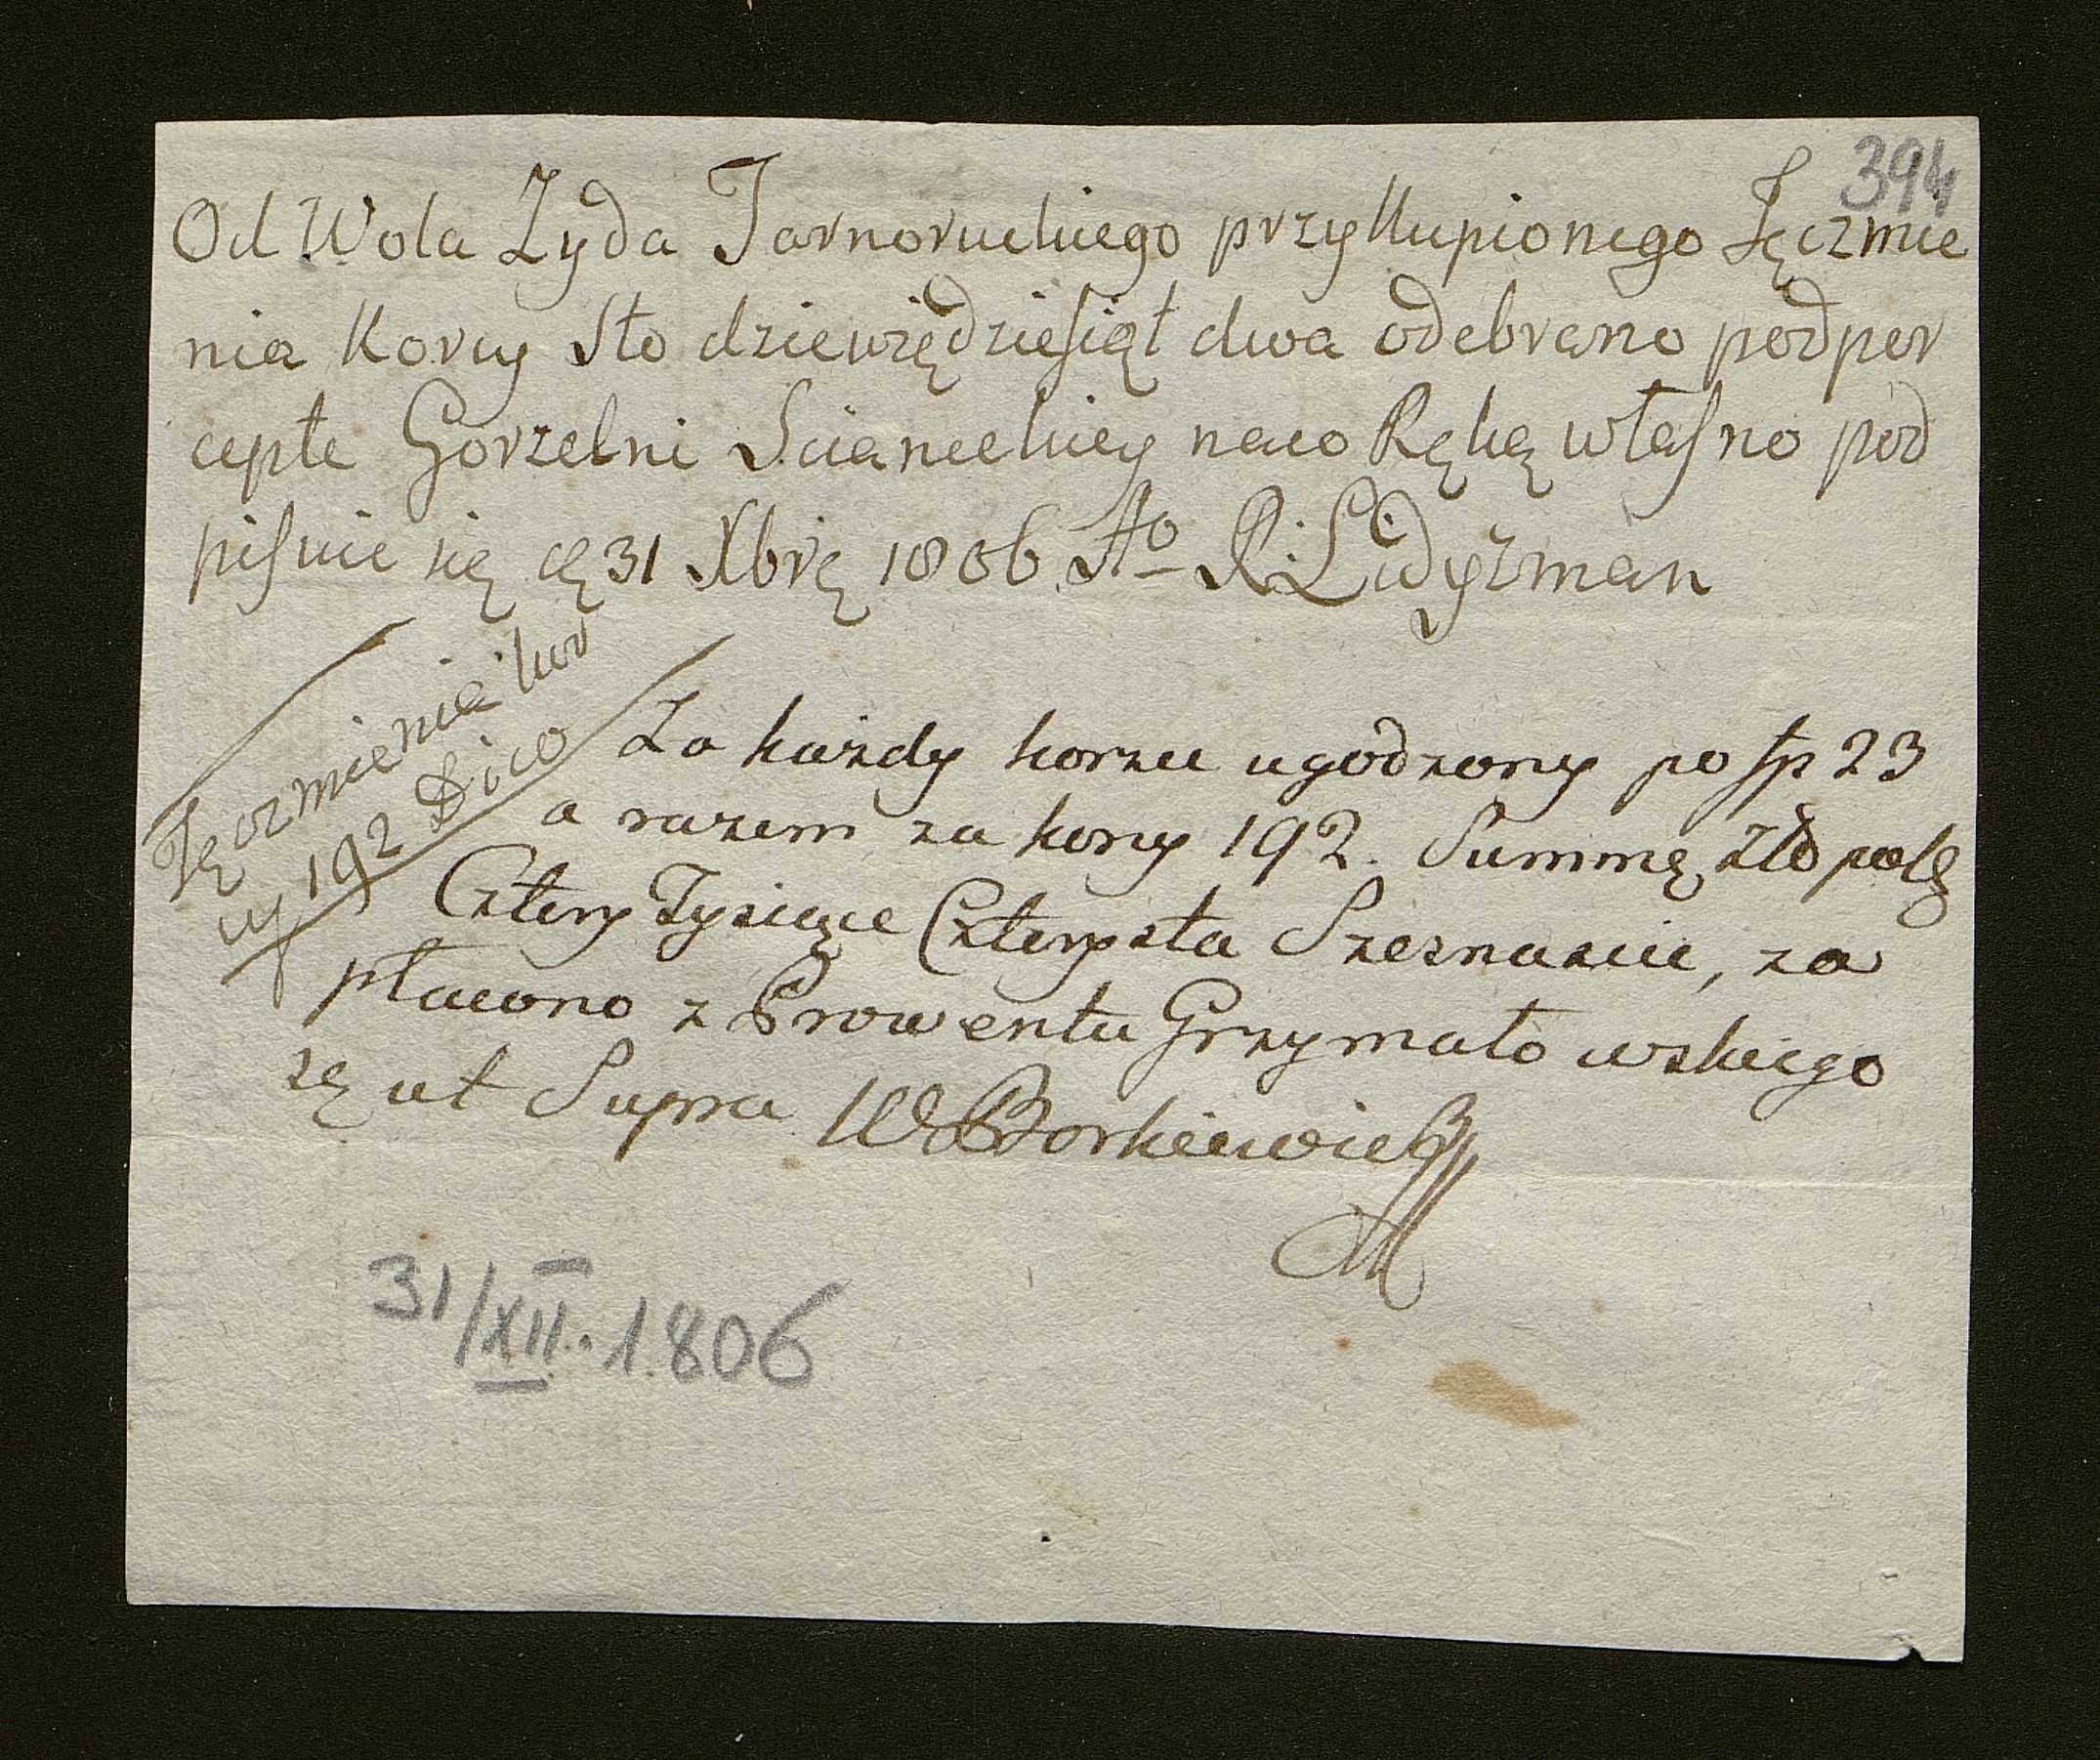 394
Od Wola Zyda Tarnoruckiego przykupionego Jęczmie
nia Korcy Sto dziewiędziesiąt dwa odebrano podper
cepte Gorzelni Scianeckiey naco Ręką własno pod
pisuie się dę 31 Xbrę 1806 Ao R: Lidyżman
Jęczmienia kor
cy 192 Dico
Za kużdy korzec ugodzony po fp 23
a razem za korcy 192. Summę Złó polś
Cztery Tysiące Czterysta Szesnascie, za
płacono z Prowentu Grzymałowskiego
dę ut Supra WBorkiewicz
31/XII. 1806